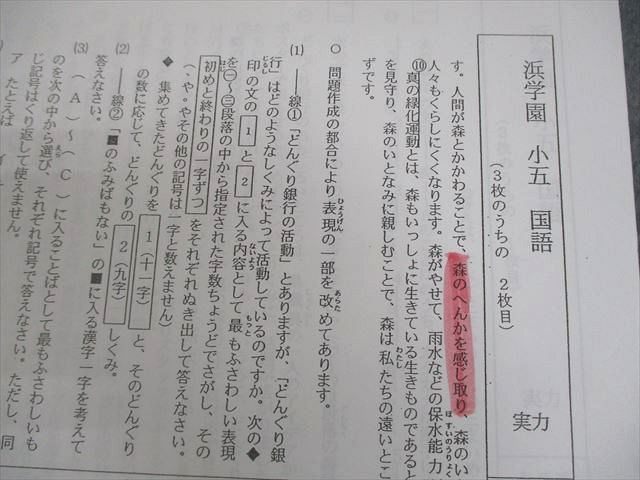 浜学園 小五 国語
(3枚のうちの 2枚目)
実力
す。人間が森とかかわることで、森のへんかを感じ取り、森のい
人々もくらしにくくなります。森がやせて、雨水などの保水能力
⑩真の緑化運動とは、森もいっしょに生きている生きものであると
を見守り、森のいとなみに親しむことで、森は私たちの遠いとこ
ずです。
○ 問題作成の都合により表現の一部を改めてあります。
(1) ――線①「どんぐり銀行の活動」とありますが、「どんぐり銀
行」はどのようなしくみによって活動しているのですか。次の◆
印の文の 1 と 2 に入る内容として最もふさわしい表現
を㊀〜㊂段落の中から指定された字数ちょうどでさがし、その
初めと終わりの一字ずつをそれぞれぬき出して答えなさい。
(、や。やその他の記号は一字と数えません)
◆ 集めてきたどんぐりを 1(十一字) と、そのどんぐり
の数に応じて、どんぐりの 2(九字) しくみ。
(2) ――線②「■のふみばもない」の■に入る漢字一字を考えて
答えなさい。
(3) (A)〜(C)に入ることばとして最もふさわしいも
のを次の中から選び、それぞれ記号で答えなさい。ただし、同
じ記号はくり返して使えません。
ア たとえば イ